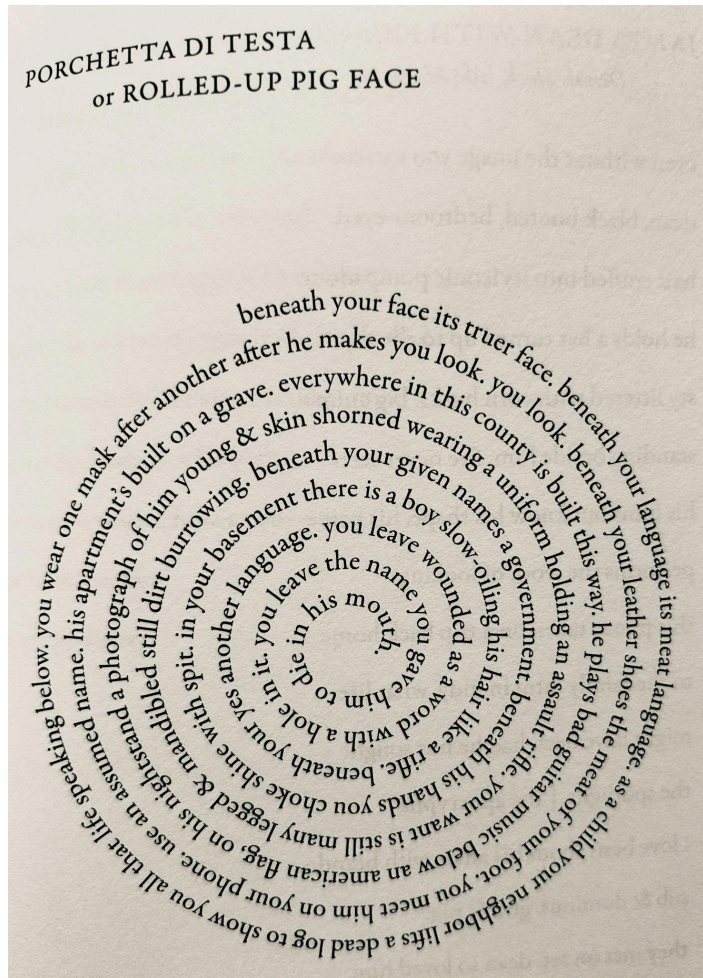 PORCHETTA DI TESTA
or ROLLED-UP PIG FACE
beneath your face its truer face. beneath your language its meat language. as a child your neighbor lifts a dead log to show you all that life speaking below. you wear one mask after another
after he makes you look. you look. beneath your leather shoes the meat of your foot. you meet him on your phone, use an assumed name. his apartment's built on a grave.
everywhere in this county is built this way. he plays bad guitar music below an american flag, on his nightstand a photograph of him young
& skin shorned wearing a uniform holding an assault rifle. your want is still many legged & mandibled still dirt burrowing.
beneath your given names a government. beneath his hands you choke shine with spit. in your basement
there is a boy slow oiling his hair like a rifle. beneath your yes another language.
you leave wounded as a word with a hole in it. you leave
the name you gave him to die in his mouth.